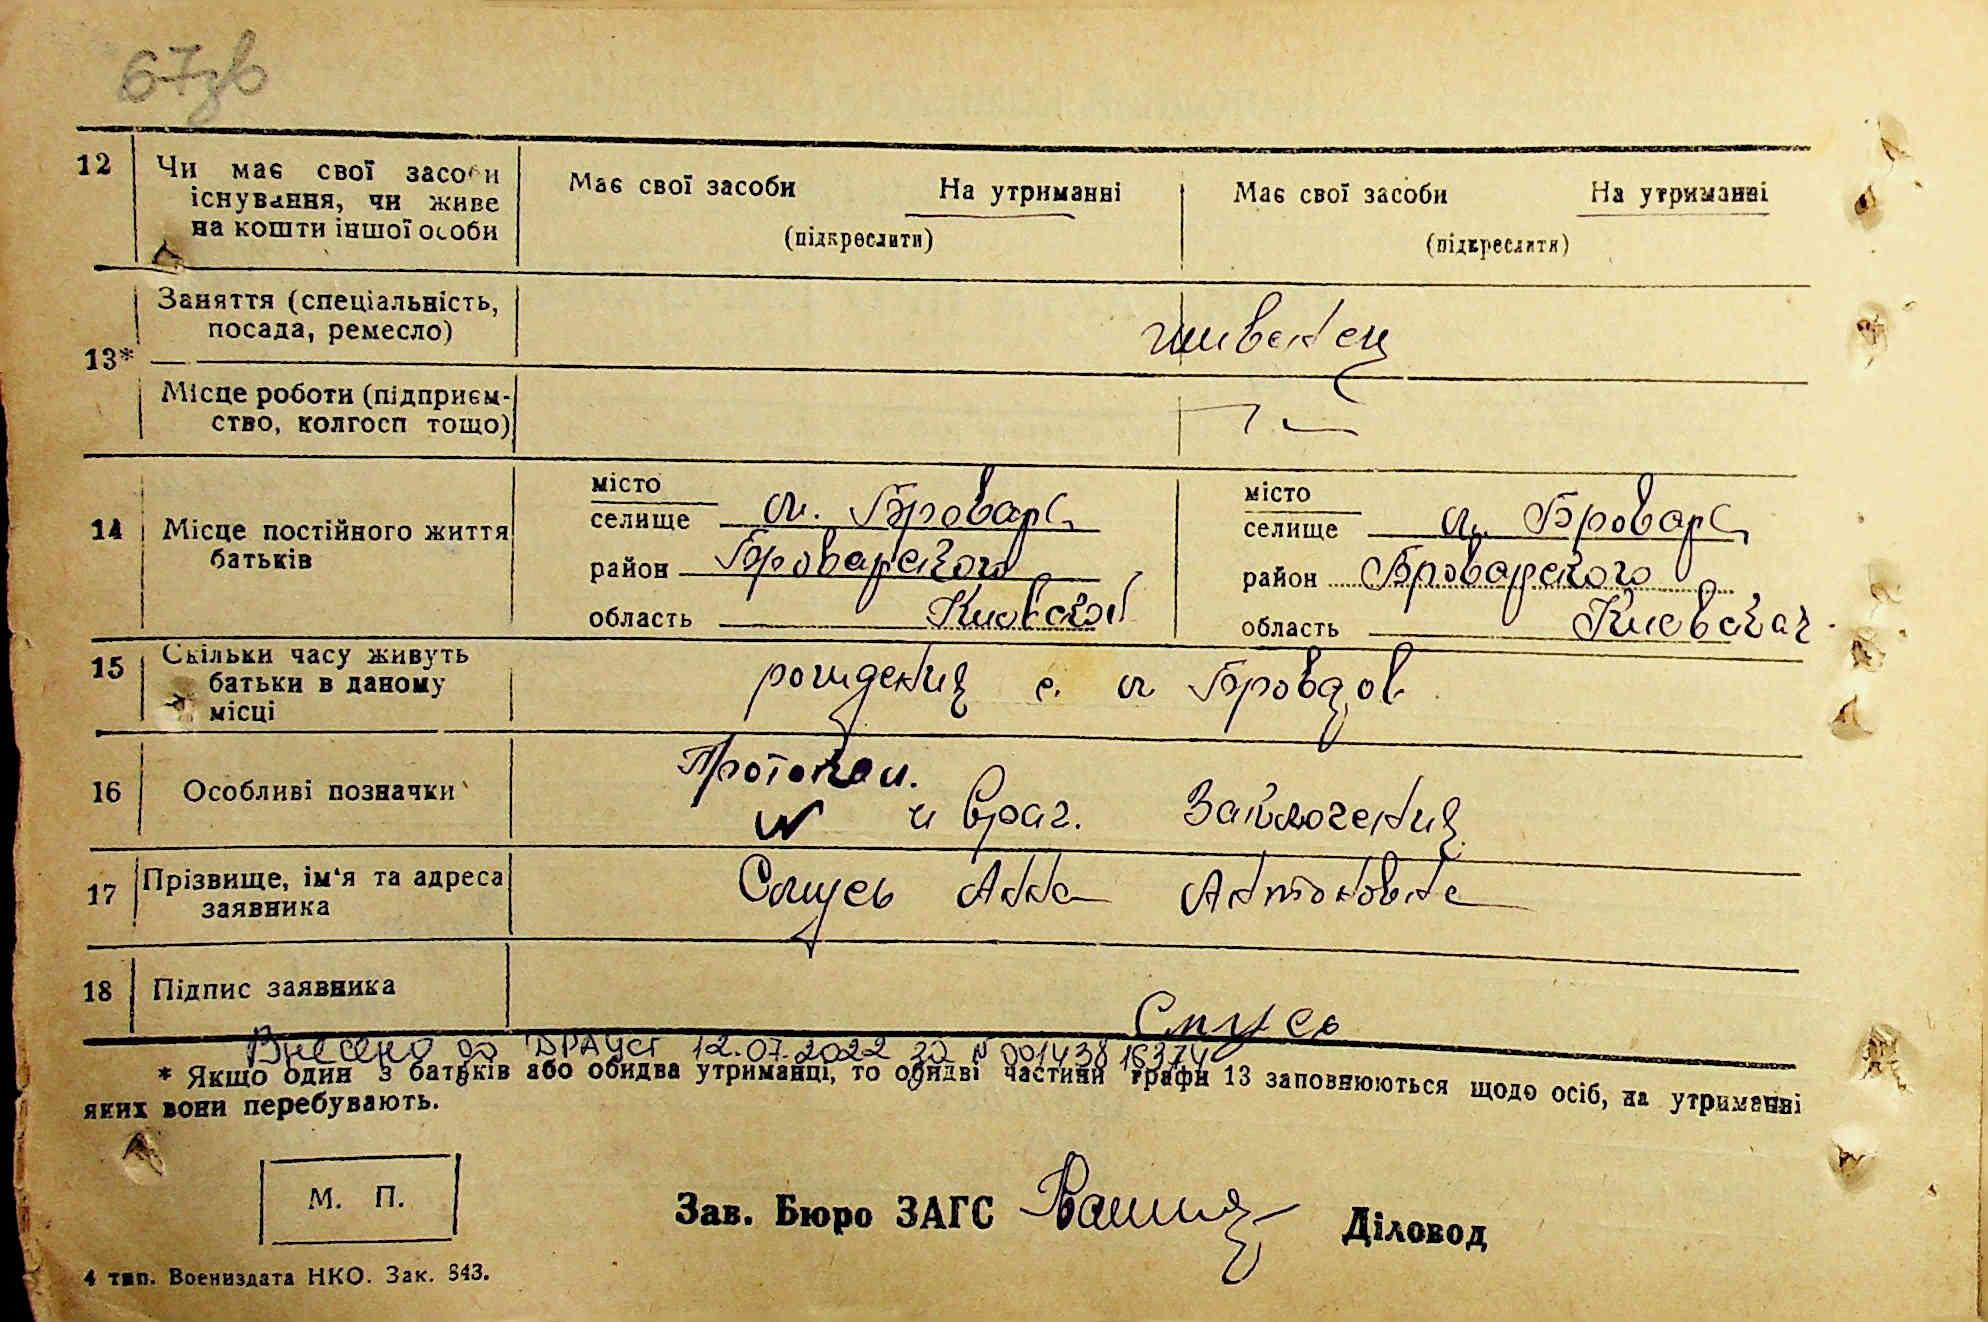 67зв
12 Чи має свої засоби Має свої засоби На утриманні Має свої засоби На утриманні
існування, чи живе
на кошти іншої особи (підкреслити) (підкреслити)
13* Заняття (спеціальність,
посада, ремесло)
Місце роботи (підприєм-
ство, колгосп тощо)
14 Місце постійного життя
батьків
місто
селище м. Бровары
район Броварского
область Киевской
місто
селище м. Бровары
район Броварского
область Киевская
15 Скільки часу живуть рождения с. м Бровары
батьки в даному
місці
16 Особливі позначки Протокол.
и врач. Заключения
17 Прізвище, ім'я та адреса Слусь Анна Антоновна
заявника
18 Підпис заявника Слусь
Внесено до ДРАЦСГ 12.07.2022 за № 00143816374
* Якщо один з батьків або обидва утриманці, то обидві частини графи 13 заповнюються щодо осіб, на утриманні
яких вони перебувають.
М. П.
Зав. Бюро ЗАГС Діловод
4 тип. Воениздата НКО. Зак. 843.